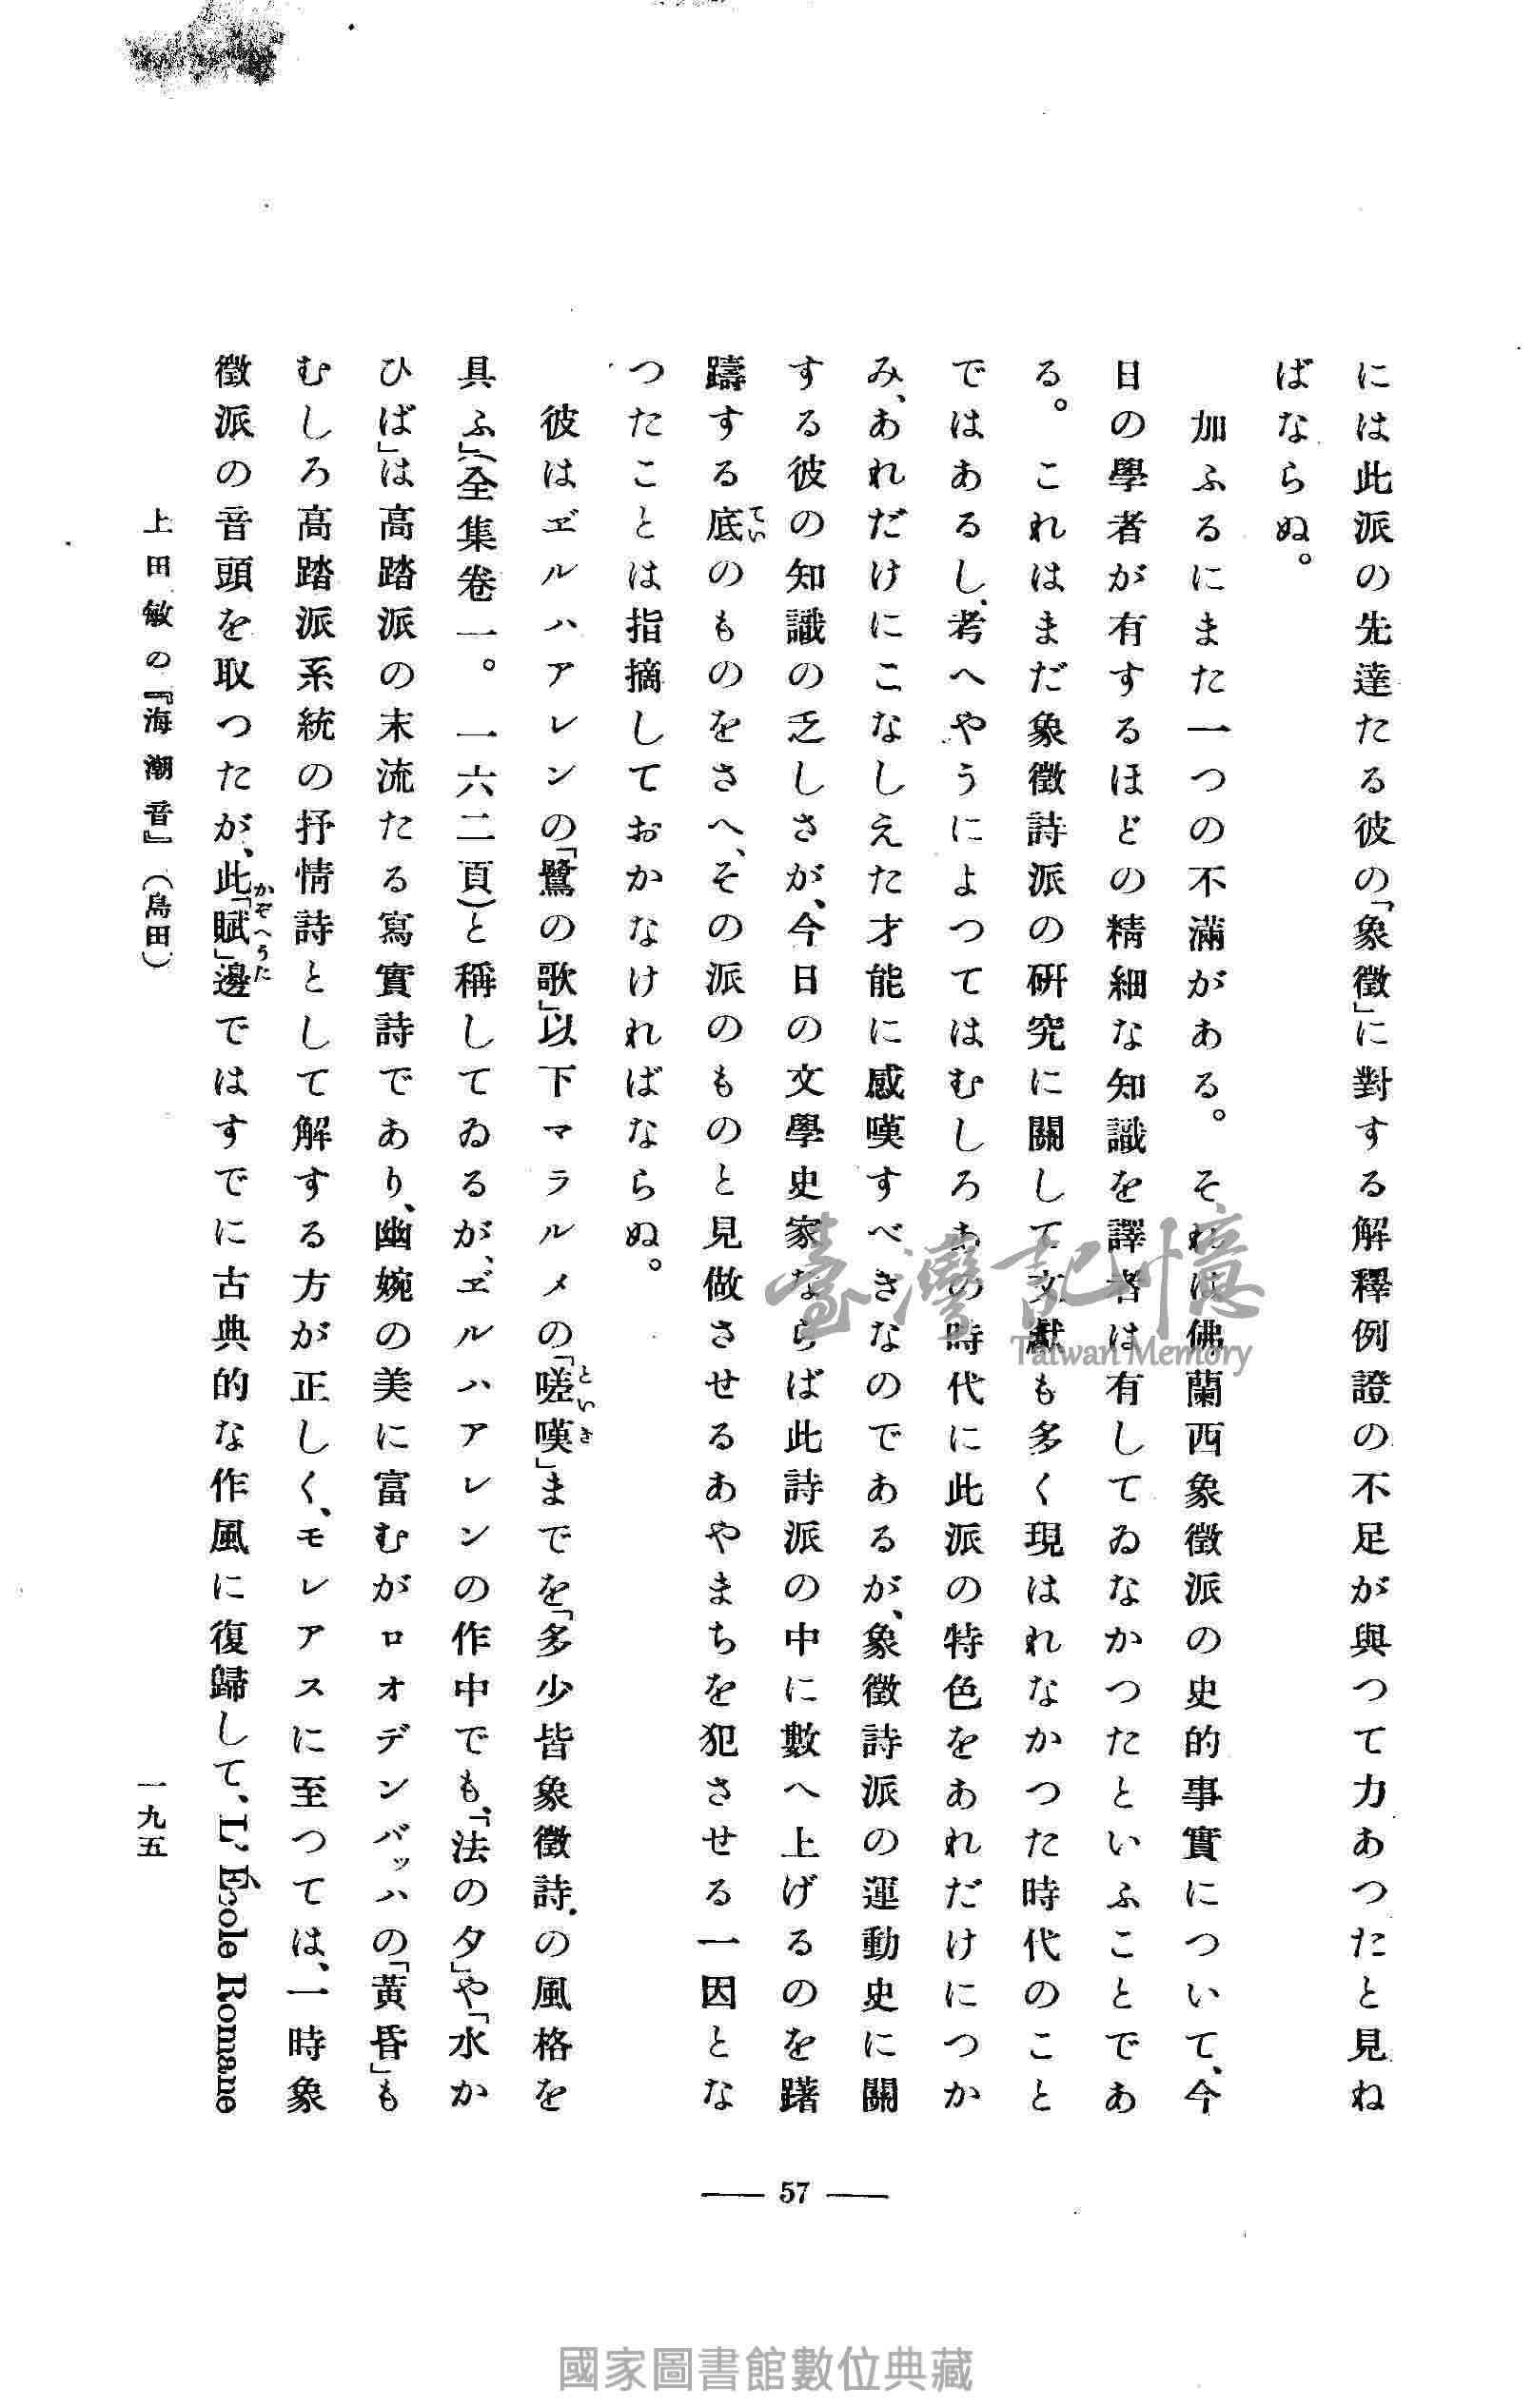 には此派の先達たる彼の「象徵」に對する解釋例證の不足が與つて力あつたと見ね
ばならぬ。
加ふるにまた一つの不滿がある。それは佛蘭西象徵派の史的事實について、今
日の學者が有するほどの精細な知識を譯者は有してゐなかつたといふことであ
る。これはまだ象徵詩派の硏究に關して文獻も多く現はれなかつた時代のこと
ではあるし、考へやうによつてはむしろあの時代に此派の特色をあれだけにつか
み、あれだけにこなしえた才能に感嘆すべきなのであるが、象徵詩派の運動史に關
する彼の知識の乏しさが、今日の文學史家ならば此詩派の中に數へ上げるのを躇
躊する底のものをさへ、その派のものと見做させるあやまちを犯させる一因とな
てい
つたことは指摘しておかなければならぬ。
彼はヹルハアレンの「鷺の歌」以下マラルメの「嗟嘆」までを「多少皆象徵詩の風格を
といき
具ふ」(全集卷一。一六二頁)と稱してゐるが、ヹルハアレンの作中でも、「法の夕」や「水か
ひば」は高踏派の末流たる寫實詩であり、幽婉の美に富むがロオデンバッハの「黃昏」も
むしろ高踏派系統の抒情詩として解する方が正しく、モレアスに至つては、一時象
徵派の音頭を取つたが、此「賦」邊ではすでに古典的な作風に復歸して、L'École Romane
かぞへうた
上田敏の『海潮音』(島田)
一九五
57
臺灣記憶
Taiwan Memory
國家圖書館數位典藏